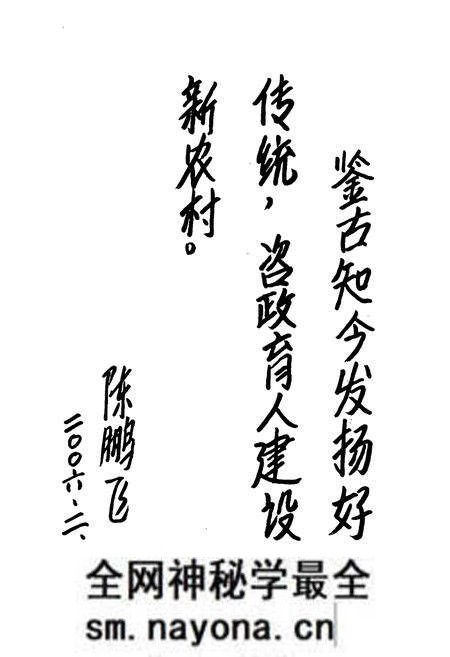 鉴古知今发扬好
传统，咨政育人建设
新农村。
陈鹏飞
二〇〇六.二.
全网神秘学最全
sm.nayona.cn